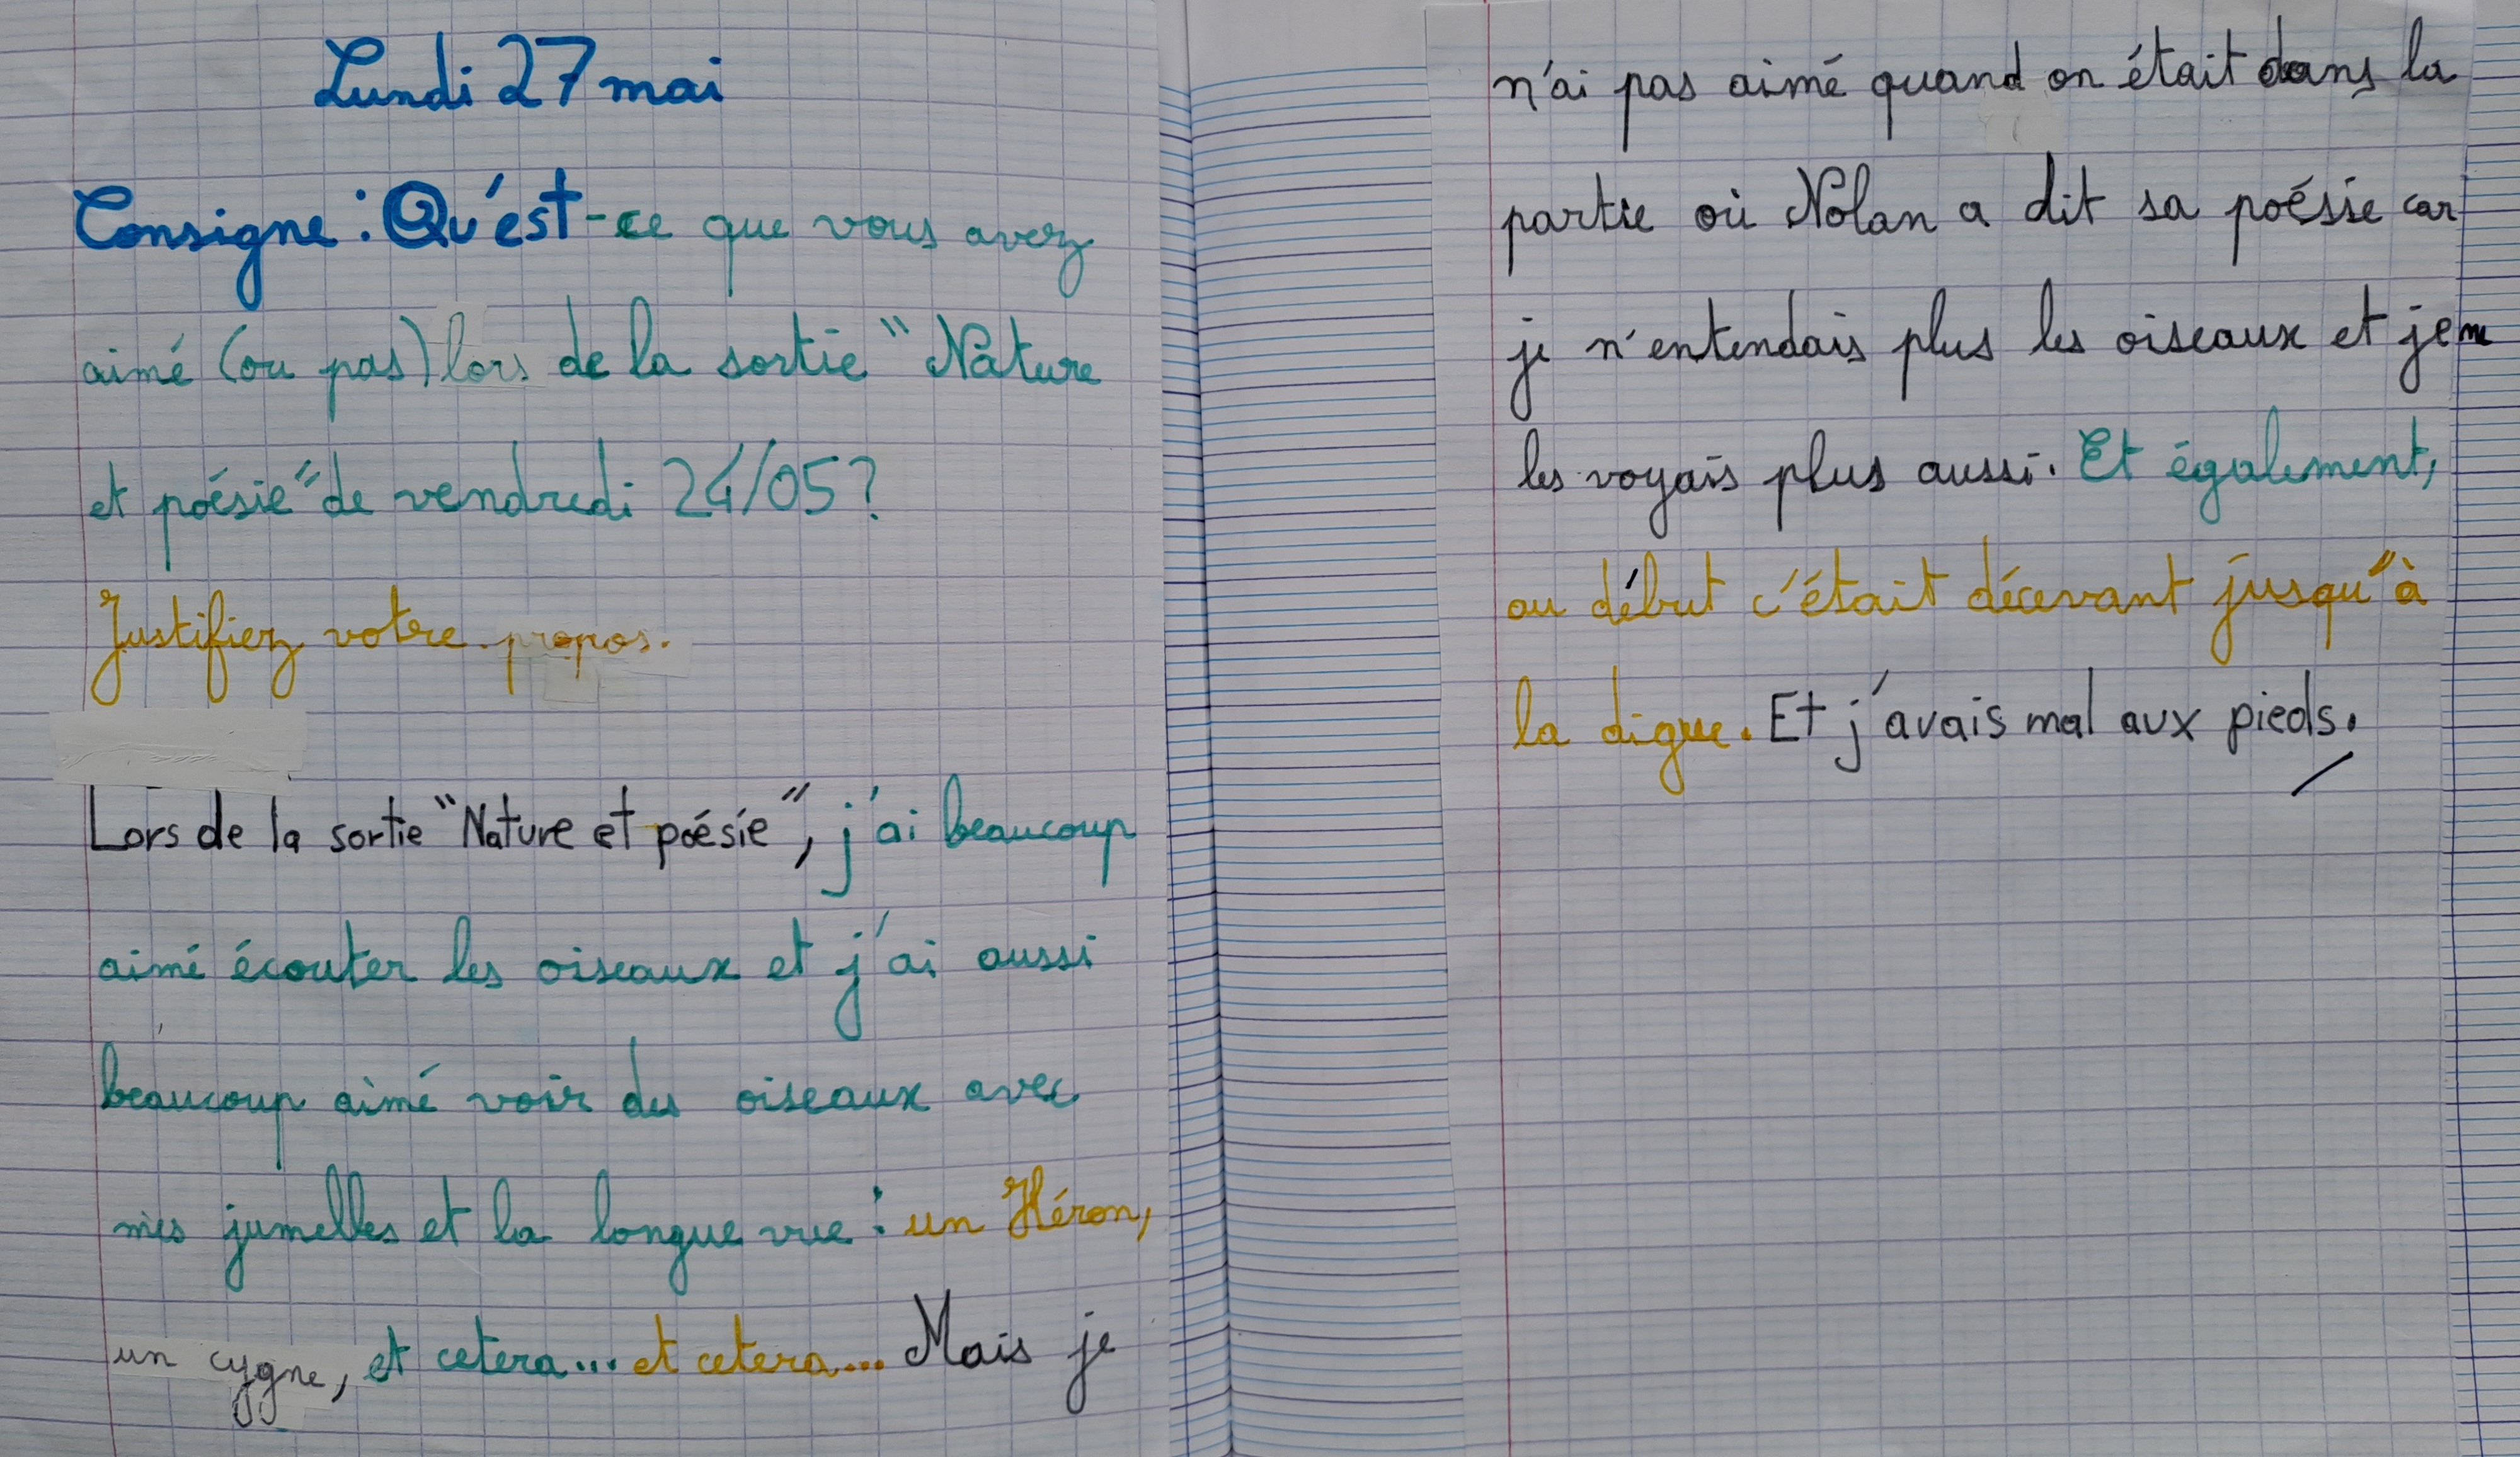 Lundi 27 mai
Consigne : Qu'est-ce que vous avez
aimé (ou pas) lors de la sortie "Nature
et poésie" de vendredi 24/05 ?
Justifiez votre propos.
Lors de la sortie "Nature et poésie", j'ai beaucoup
aimé écouter les oiseaux et j'ai aussi
beaucoup aimé voir des oiseaux avec
mes jumelles et la longue vue : un Héron,
un cygne, et cetera... et cetera... Mais je
n'ai pas aimé quand on était dans la
partie où Nolan a dit sa poésie car
je n'entendais plus les oiseaux et je ne
les voyais plus aussi. Et également,
au début c'était décevant jusqu'à
la digue. Et j'avais mal aux pieds.